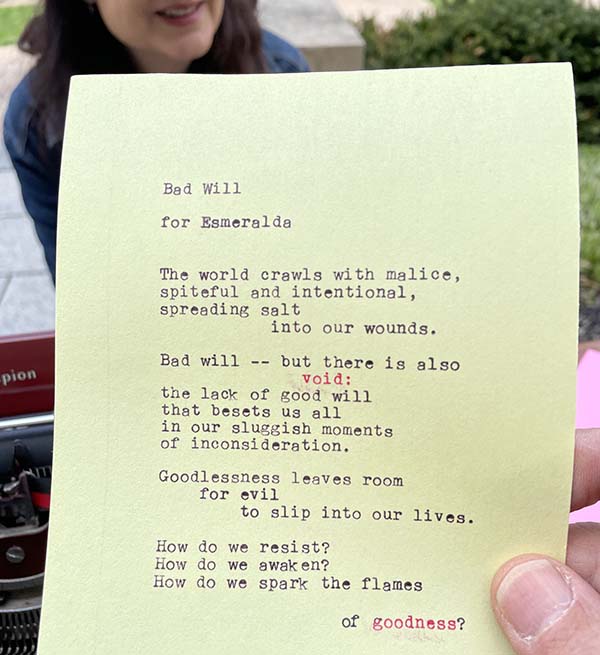 Bad Will
for Esmeralda
The world crawls with malice,
spiteful and intentional,
spreading salt
into our wounds.
Bad will -- but there is also
void:
the lack of good will
that besets us all
in our sluggish moments
of inconsideration.
Goodlessness leaves room
for evil
to slip into our lives.
How do we resist?
How do we awaken?
How do we spark the flames
of goodness?
pion